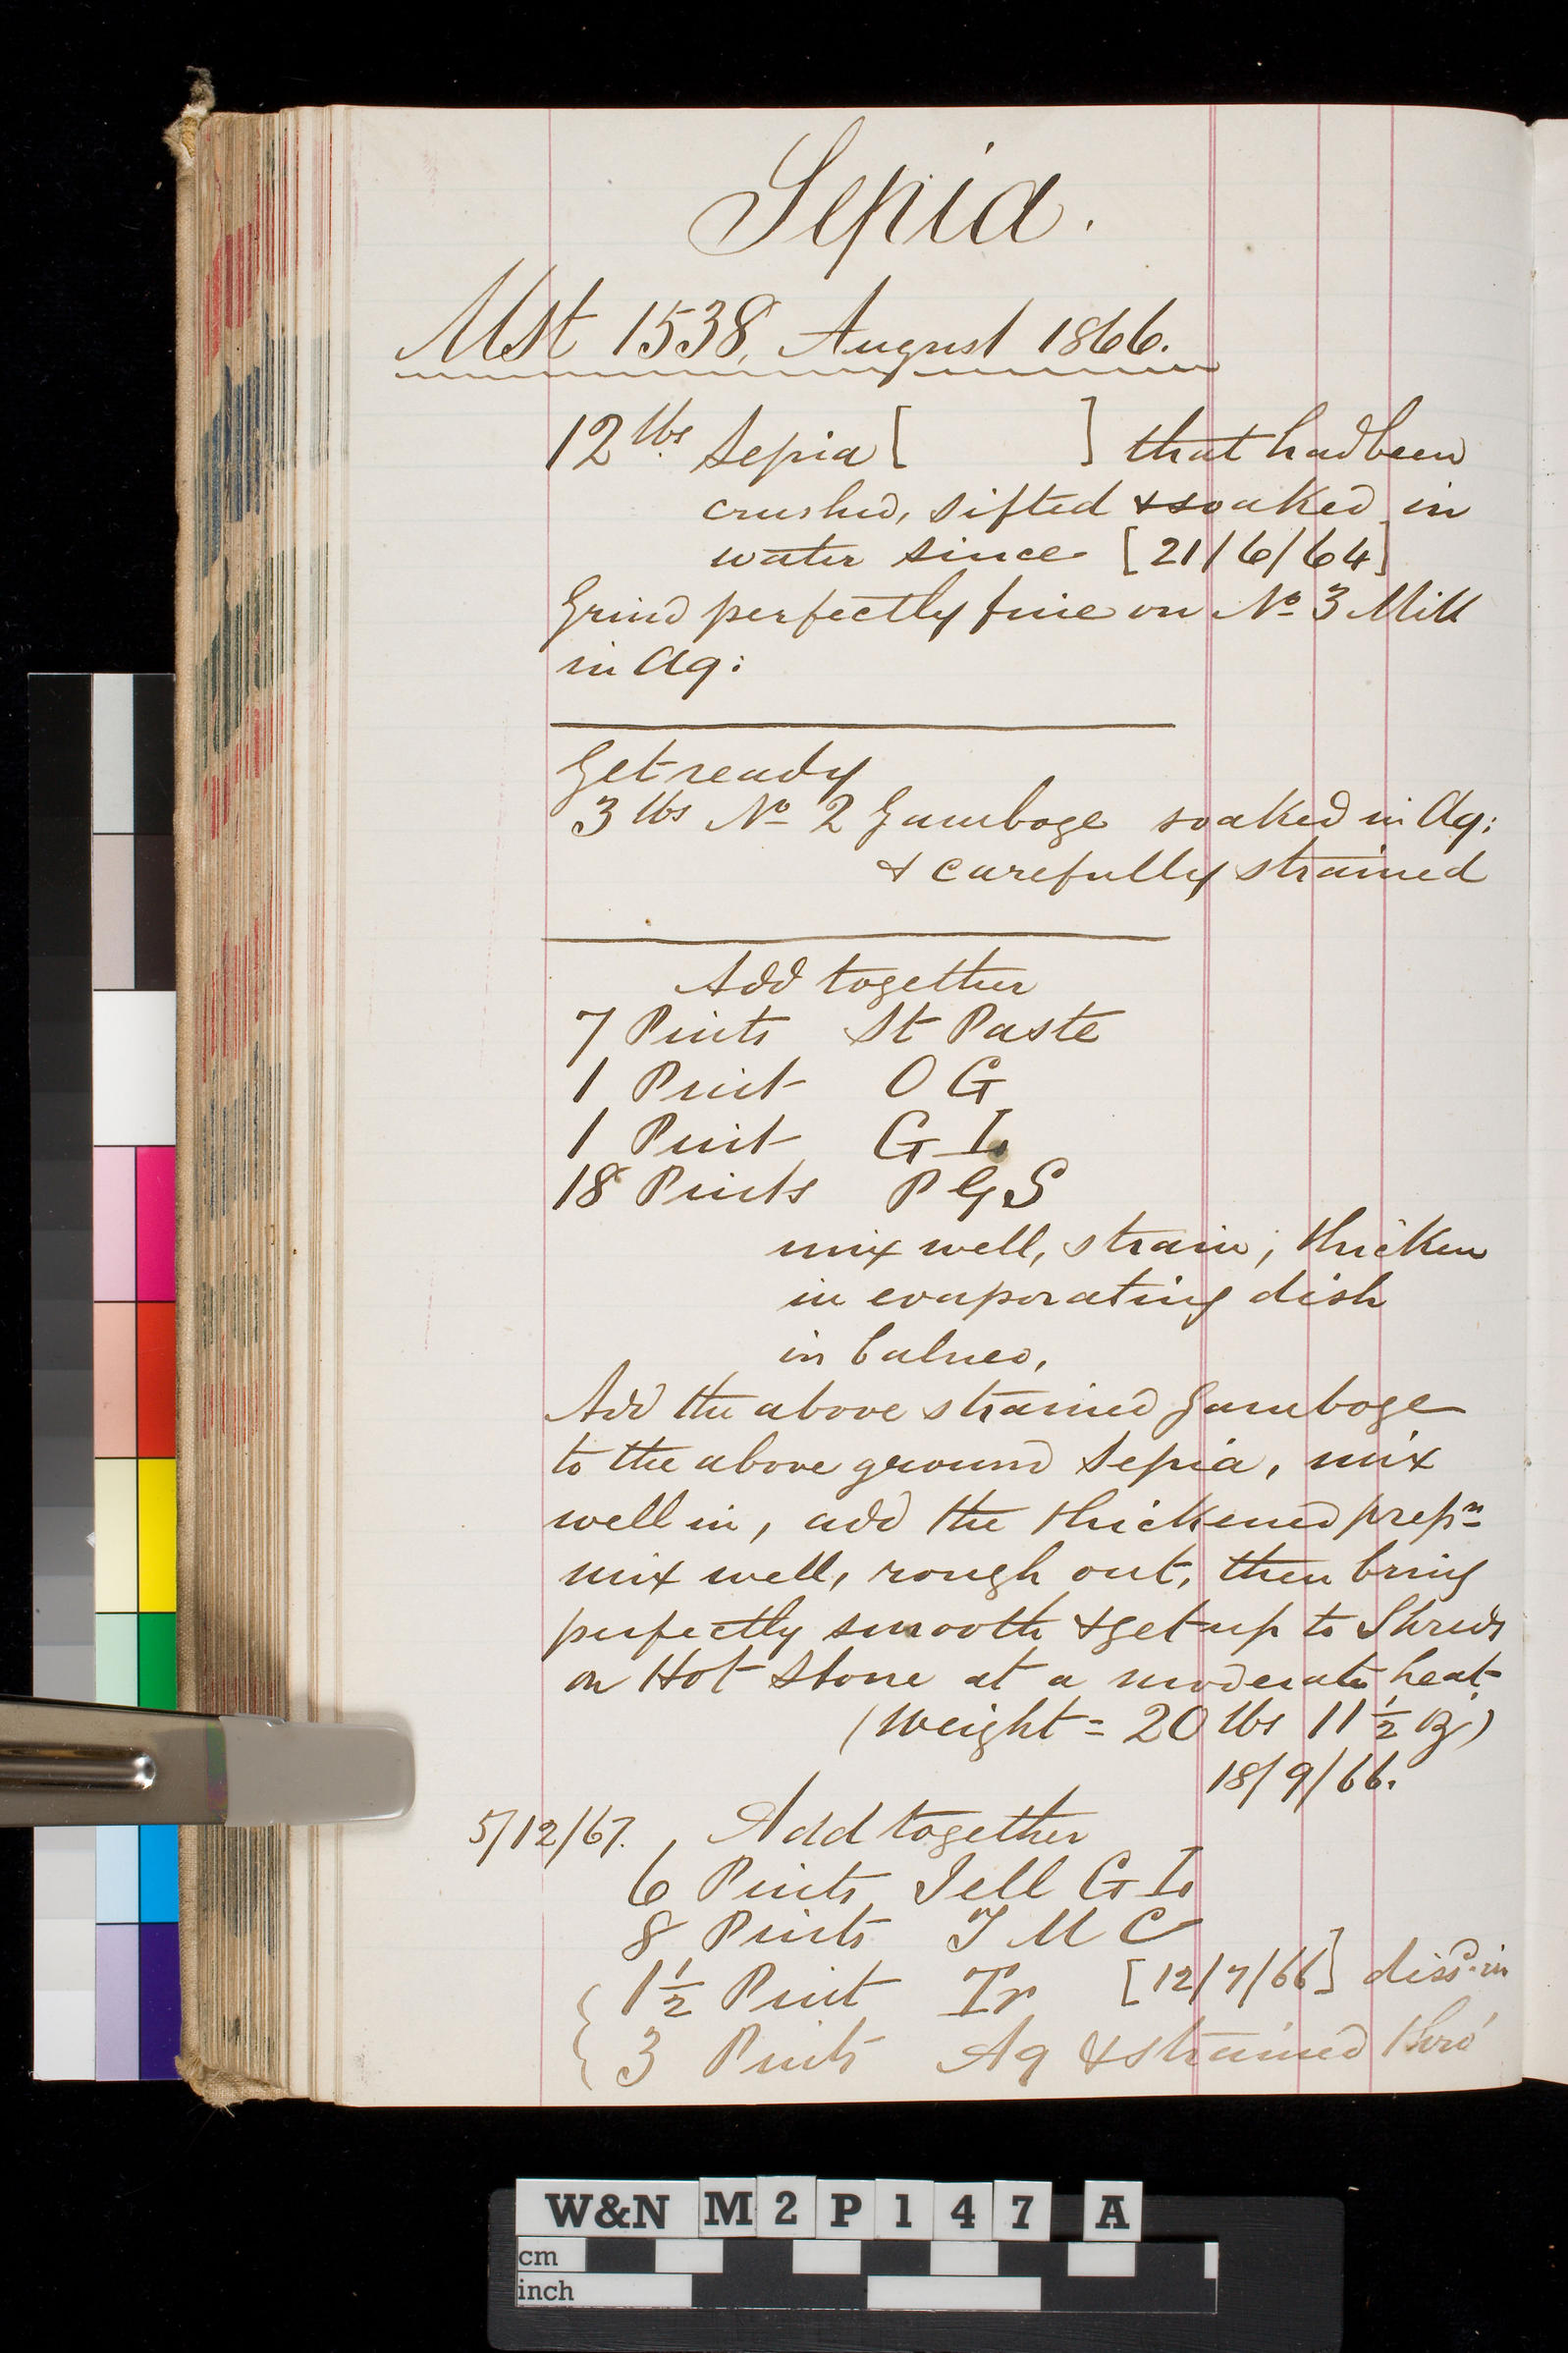 Sepia.
Mst 1538, August 1866.
12 lbs Sepia [ ] that had been
crushed, sifted & soaked in
water since [21/6/64]
Grind perfectly fine on No 3 Mill
in Aq:
Get ready
3 lbs No 2 Gamboge soaked in Aq:
& carefully strained
Add together
7 Pints St Paste
1 Pint O G
1 Pint G I
18 Pints P G S
mix well, strain, thicken
in evaporating dish
in balneo,
Add the above strained Gamboge
to the above ground Sepia, mix
well in, add the thickened prepn
mix well, rough out, then bring
perfectly smooth & get up to Shreds
on Hot Stone at a moderate heat
(Weight = 20 lbs 11 1/2 oz)
18/9/66.
5/12/67. Add together
6 Pints Jell G I
8 Pints J M C
1 1/2 Pint Tr [12/7/66] dissd in
3 Pints Aq & strained thro'
W&N M2P147 A
cm
inch